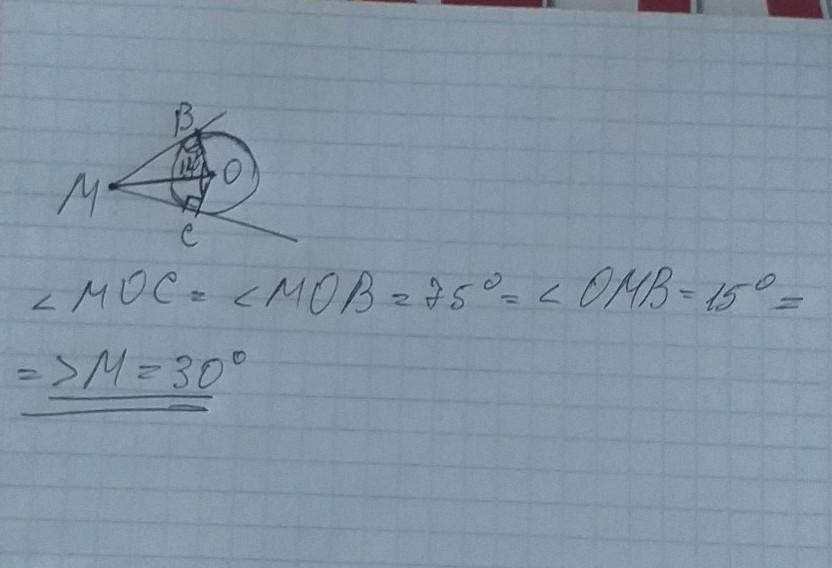 B
M
O
C
< MOC = < MOB = 75° = < OMB = 15° =
=> M = 30°